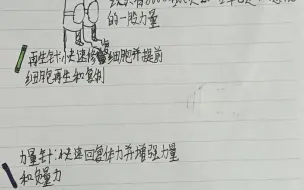 的一股力量
再生针:快速修复细胞并提前
细胞再生和复制
力量针:快速回复体力并增强力量
和负量力